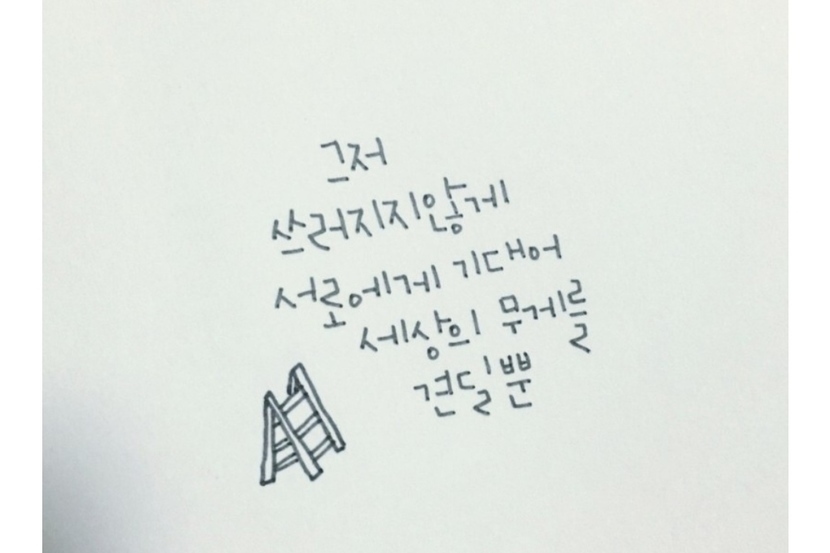 그저
쓰러지지않게
서로에게 기대어
세상의 무게를
견딜뿐